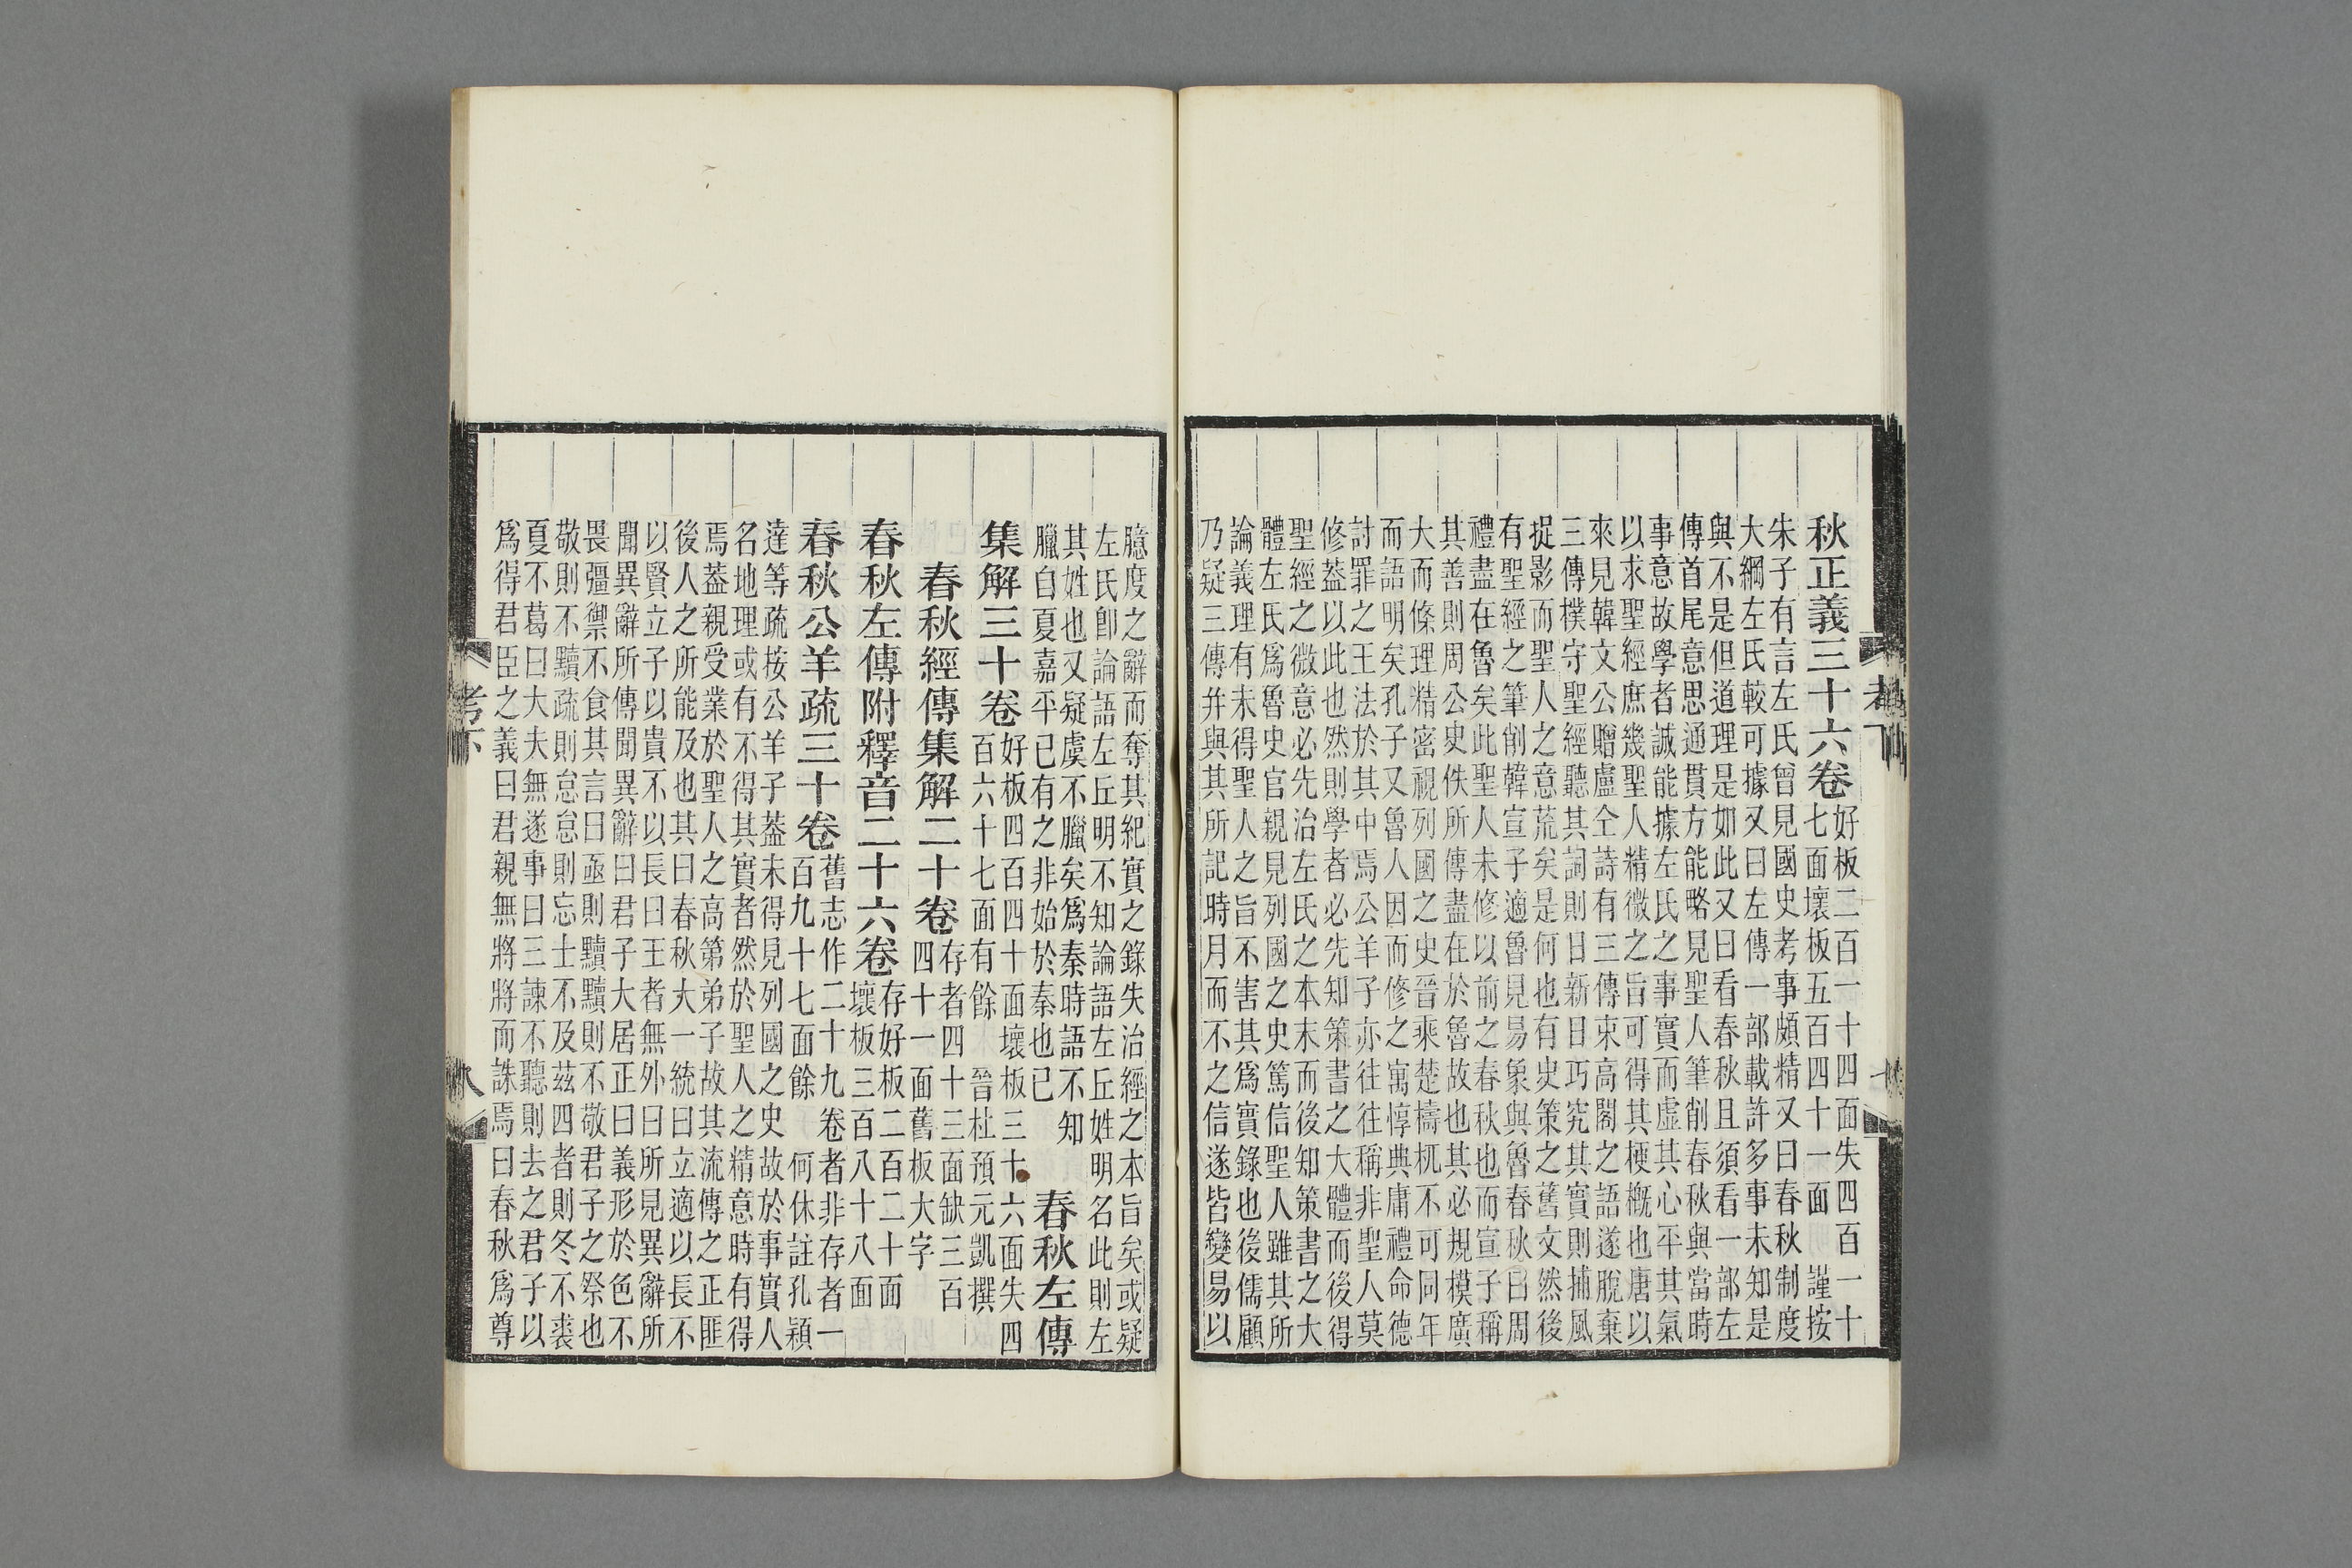 秋正義三十六卷好板二百一十四面失四百一十
七面壞板五百四十一面　謹按
朱子有言左氏曾見國史考事頗精又曰春秋制度
大綱左氏較可據又曰左傳一部載許多事未知是
與不是但道理是如此又曰看春秋且須看一部左
傳首尾意思通貫方能略見聖人筆削春秋與當時
事意故學者誠能據左氏之事實而虛其心平其氣
以求聖經庶幾聖人精微之旨可得其梗概也唐以
來見韓文公贈盧仝詩有三傳束高閣之語遂脫棄
三傳樸守聖經聽其詞則日新目巧究其實則捕風
捉影而聖人之意荒矣是何也有史策之舊文然後
有聖經之筆削韓宣子適魯見易象與魯春秋曰周
禮盡在魯矣此聖人未修以前之春秋也而宣子稱
其善則周公史佚所傳盡在於魯故也其必規模廣
大而條理精密視列國之史晉乘楚檮杌不可同年
而語明矣孔子又魯人因而修之寓惇典庸禮命德
討罪之王法於其中焉公羊子亦往往稱非聖人莫
修葢以此也然則學者必先知策書之大體而後得
聖經之微意必先治左氏之本末而後知策書之大
體左氏爲魯史官親見列國之史篤信聖人雖其所
論義理有未得聖人之旨不害其爲實錄也後儒顧
乃疑三傳并與其所記時月而不之信遂皆變易以
臆度之辭而奪其紀實之錄失治經之本旨矣或疑
左氏卽論語左丘明不知論語左丘姓明名此則左
其姓也又疑虞不臘矣爲秦時語不知
臘自夏嘉平已有之非始於秦也已
春秋左傳
集解三十卷好板四百四十面壞板三十六面失四
百六十七面有餘　晉杜預元凱撰
春秋經傳集解二十卷存者四十三面缺三百
四十一面舊板大字
春秋左傳附釋音二十六卷存好板二百二十面
壞板三百八十八面
春秋公羊疏三十卷舊志作二十九卷者非存者一
百九十七面餘　何休註孔穎
達等疏按公羊子葢未得見列國之史故於事實人
名地理或有不得其實者然於聖人之精意時有得
焉葢親受業於聖人之高第弟子故其流傳之正匪
後人之所能及也其曰春秋大一統曰立適以長不
以賢立子以貴不以長曰王者無外曰所見異辭所
聞異辭所傳聞異辭曰君子大居正曰義形於色不
畏彊禦不食其言曰亟則黷黷則不敬君子之祭也
敬則不黷疏則怠怠則忘士不及茲四者則冬不裘
夏不葛曰大夫無遂事曰三諫不聽則去之君子以
爲得君臣之義曰君親無將將而誅焉曰春秋爲尊
考下
八